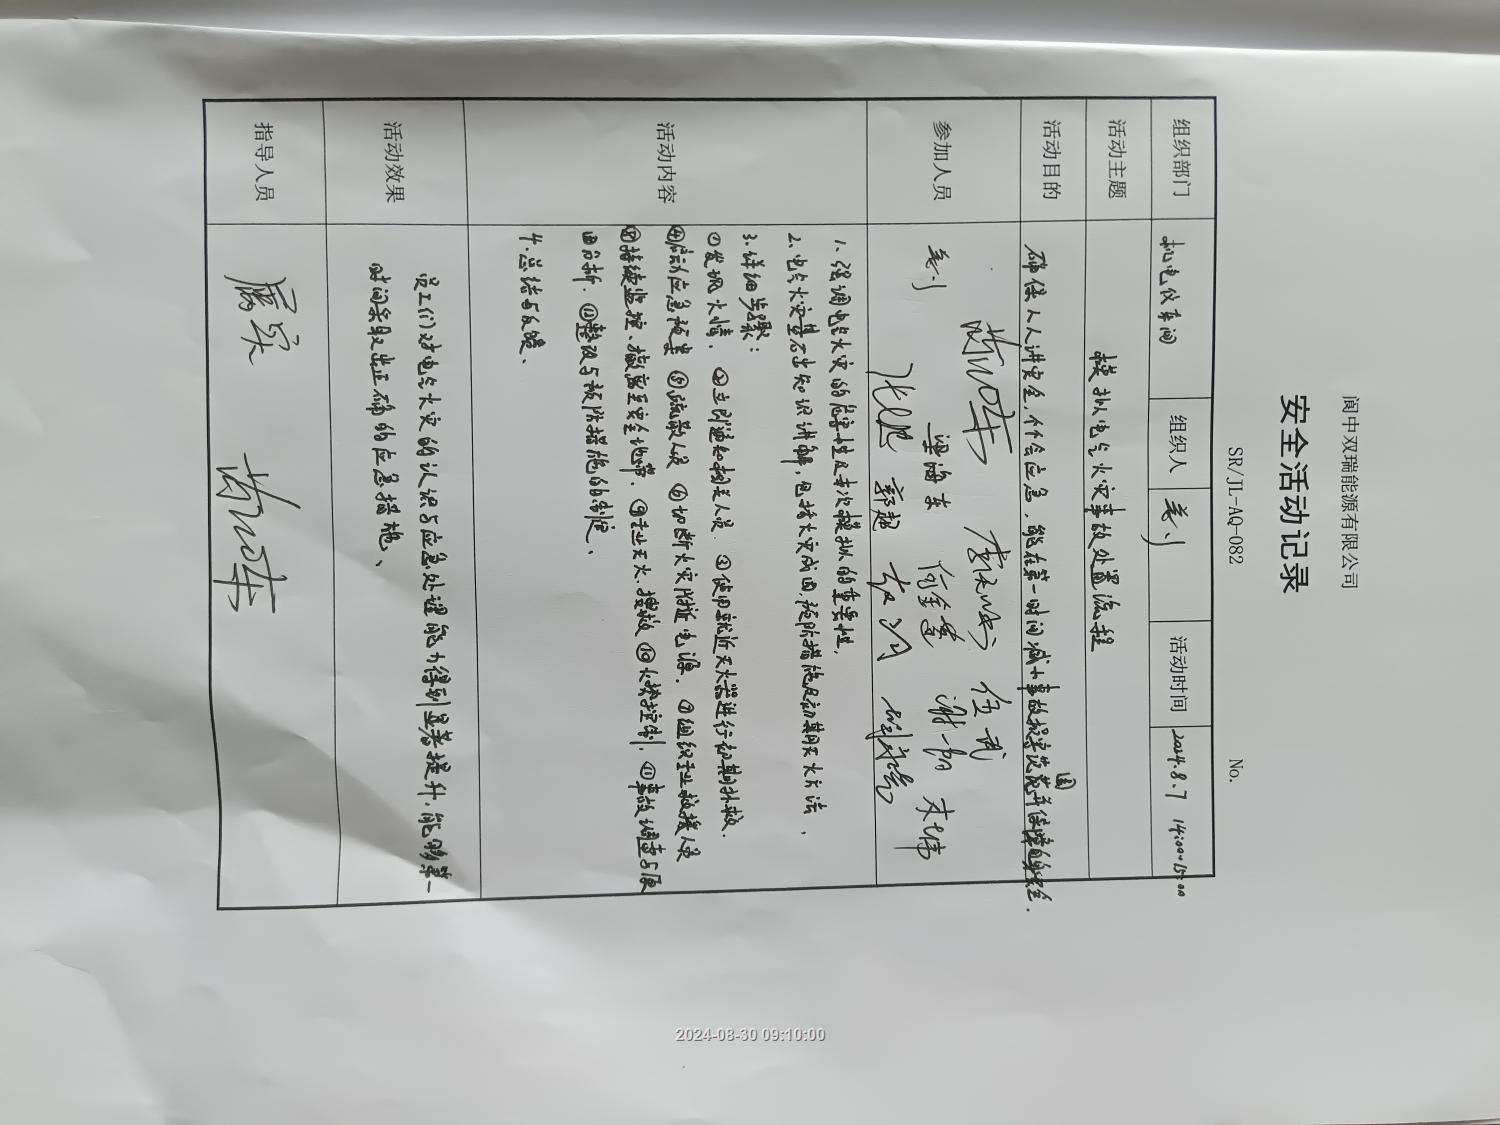 阆中双瑞能源有限公司
安全活动记录
SR/JL-AQ-082 No.
组织部门 机电仪车间 组织人 活动时间 2024.8.7 14:00-15:00
活动主题 模拟电气火灾事故处置流程
活动目的 确保人人讲安全,个个会应急,能在第一时间减小事故损害范围并保障
参加人员
梁海东 任武
郭超 谢一帆
活动内容
1.强调电气火灾的危害性及本次模拟的重要性,
2.电气火灾基本知识讲解,包括火灾成因,预防措施及初期灭火方法,
3.详细步骤:
①发现火情, ②立即通知相关人员. ③使用就近灭火器进行初期扑救.
④启动应急预案 ⑤疏散人员 ⑥切断火灾附近电源. ⑦组织专业救援人员
⑧持续监控、撤离至安全地带. ⑨专业灭火.搜救 ⑩火势控制. ⑪事故调查与原
因分析. ⑫整改与预防措施的制定、
4.总结与反馈、
活动效果
员工们对电气火灾的认识与应急处理能力得到显著提升.能够第一
时间采取出正确的应急措施、
指导人员
2024-08-30 09:10:00